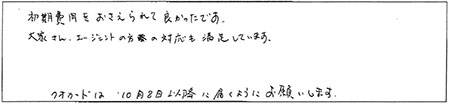 初期費用をおさえられて良かったです。
大家さん、エージェントの方等の対応も満足しています。
クオカードは 10月8日以降に届くようにお願いします。